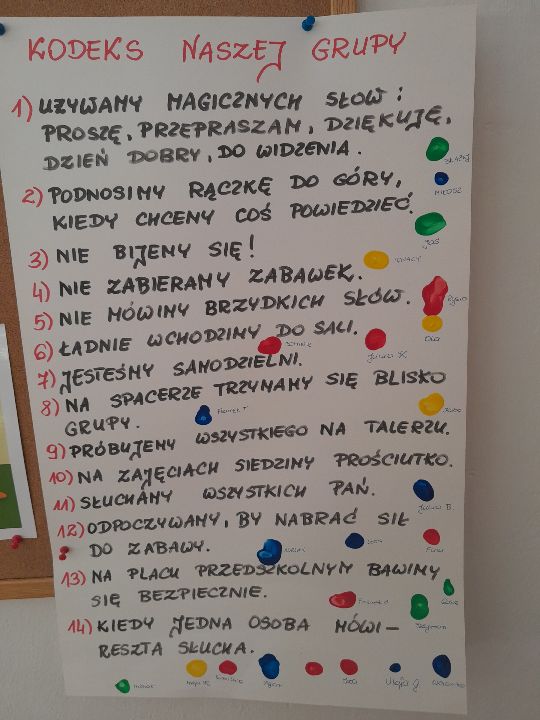 KODEKS NASZEJ GRUPY
1) UŻYWAMY MAGICZNYCH SŁÓW:
PROSZĘ, PRZEPRASZAM, DZIĘKUJĘ,
DZIEŃ DOBRY, DO WIDZENIA.
2) PODNOSIMY RĄCZKĘ DO GÓRY,
KIEDY CHCEMY COŚ POWIEDZIEĆ.
MIŁOSZ
3) NIE BIJEMY SIĘ!
4) NIE ZABIERAMY ZABAWEK.
5) NIE MÓWIMY BRZYDKICH SŁÓW.
6) ŁADNIE WCHODZIMY DO SALI.
Julia K.
7) JESTEŚMY SAMODZIELNI.
8) NA SPACERZE TRZYMAMY SIĘ BLISKO
GRUPY.
9) PRÓBUJEMY WSZYSTKIEGO NA TALERZU.
10) NA ZAJĘCIACH SIEDZIMY PROŚCIUTKO.
11) SŁUCHAMY WSZYSTKICH PAŃ.
Julia B.
12) ODPOCZYWAMY, BY NABRAĆ SIŁ
DO ZABAWY.
13) NA PLACU PRZEDSZKOLNYM BAWIMY
SIĘ BEZPIECZNIE.
14) KIEDY JEDNA OSOBA MÓWI –
RESZTA SŁUCHA.